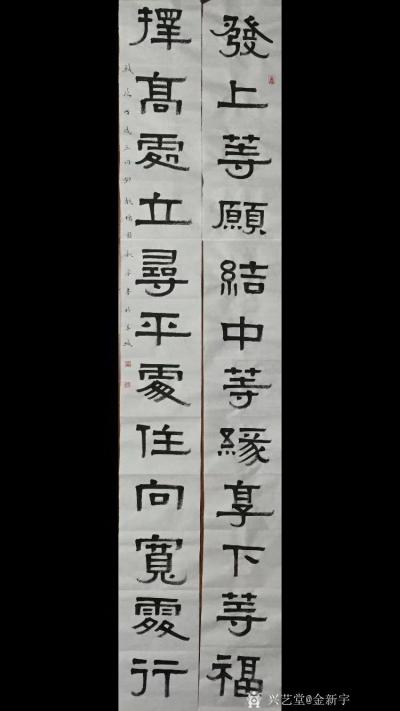 發上等願結中等緣享下等福
擇高處立尋平處住向寬處行
兴艺堂@金新宇